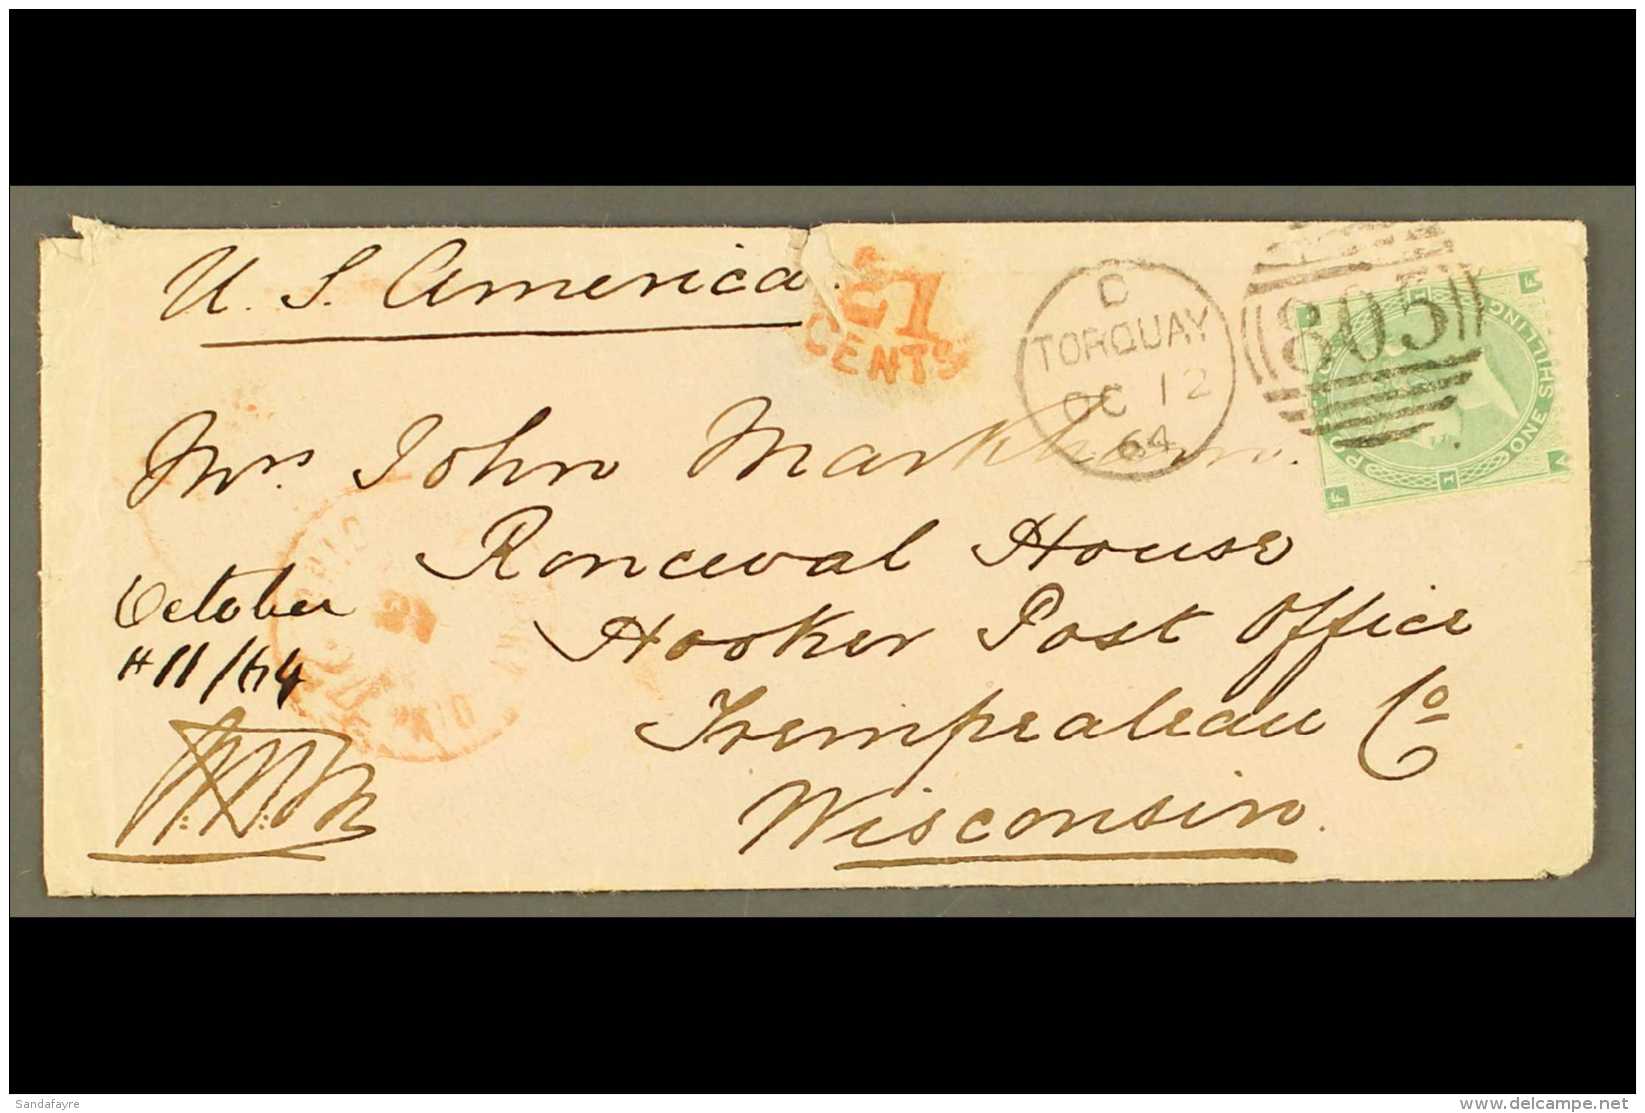 U. S. America.
21
CENTS
D
TORQUAY
OC 12
64
805
ONE SHILLING
F
1
A
Mrs John Markham.
Ronceval House
Hooker Post Office
Trempealeau Co
Wisconsin.
October
#11/64
Sandafayre
delcampe.net